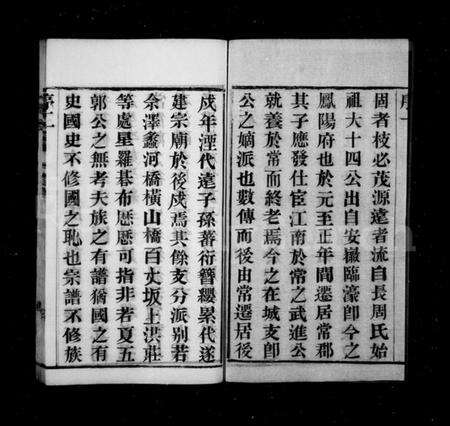 固者枝必茂源遠者流自長周氏始
祖大十四公出自安徽臨濠卽今之
鳳陽府也於元至正年間遷居常郡
其子應發仕宦江南於常之武進公
就養於常而終老焉今之在城支卽
公之嫡派也數傳而後由常遷居後
戍年湮代遠子孫蕃衍簪纓累代遂
建宗廟於後戍焉其餘支分派别若
余澤鑫河橋橫山橋百丈坂上洪莊
等處星羅碁布厯厯可指非若夏五
郭公之無考夫族之有譜猶國之有
史國史不修國之恥也宗譜不修族
序二